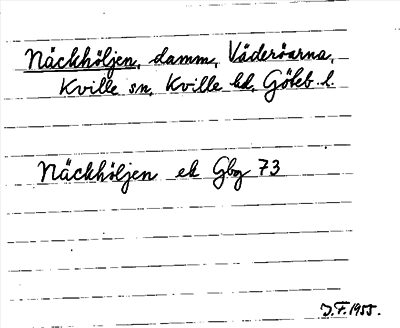 Näckhöljen, damm, Väderöarna,
Kville sn, Kville hd, Göteb. l.
Näckhöljen ek Gbg 73
J.F. 1955.